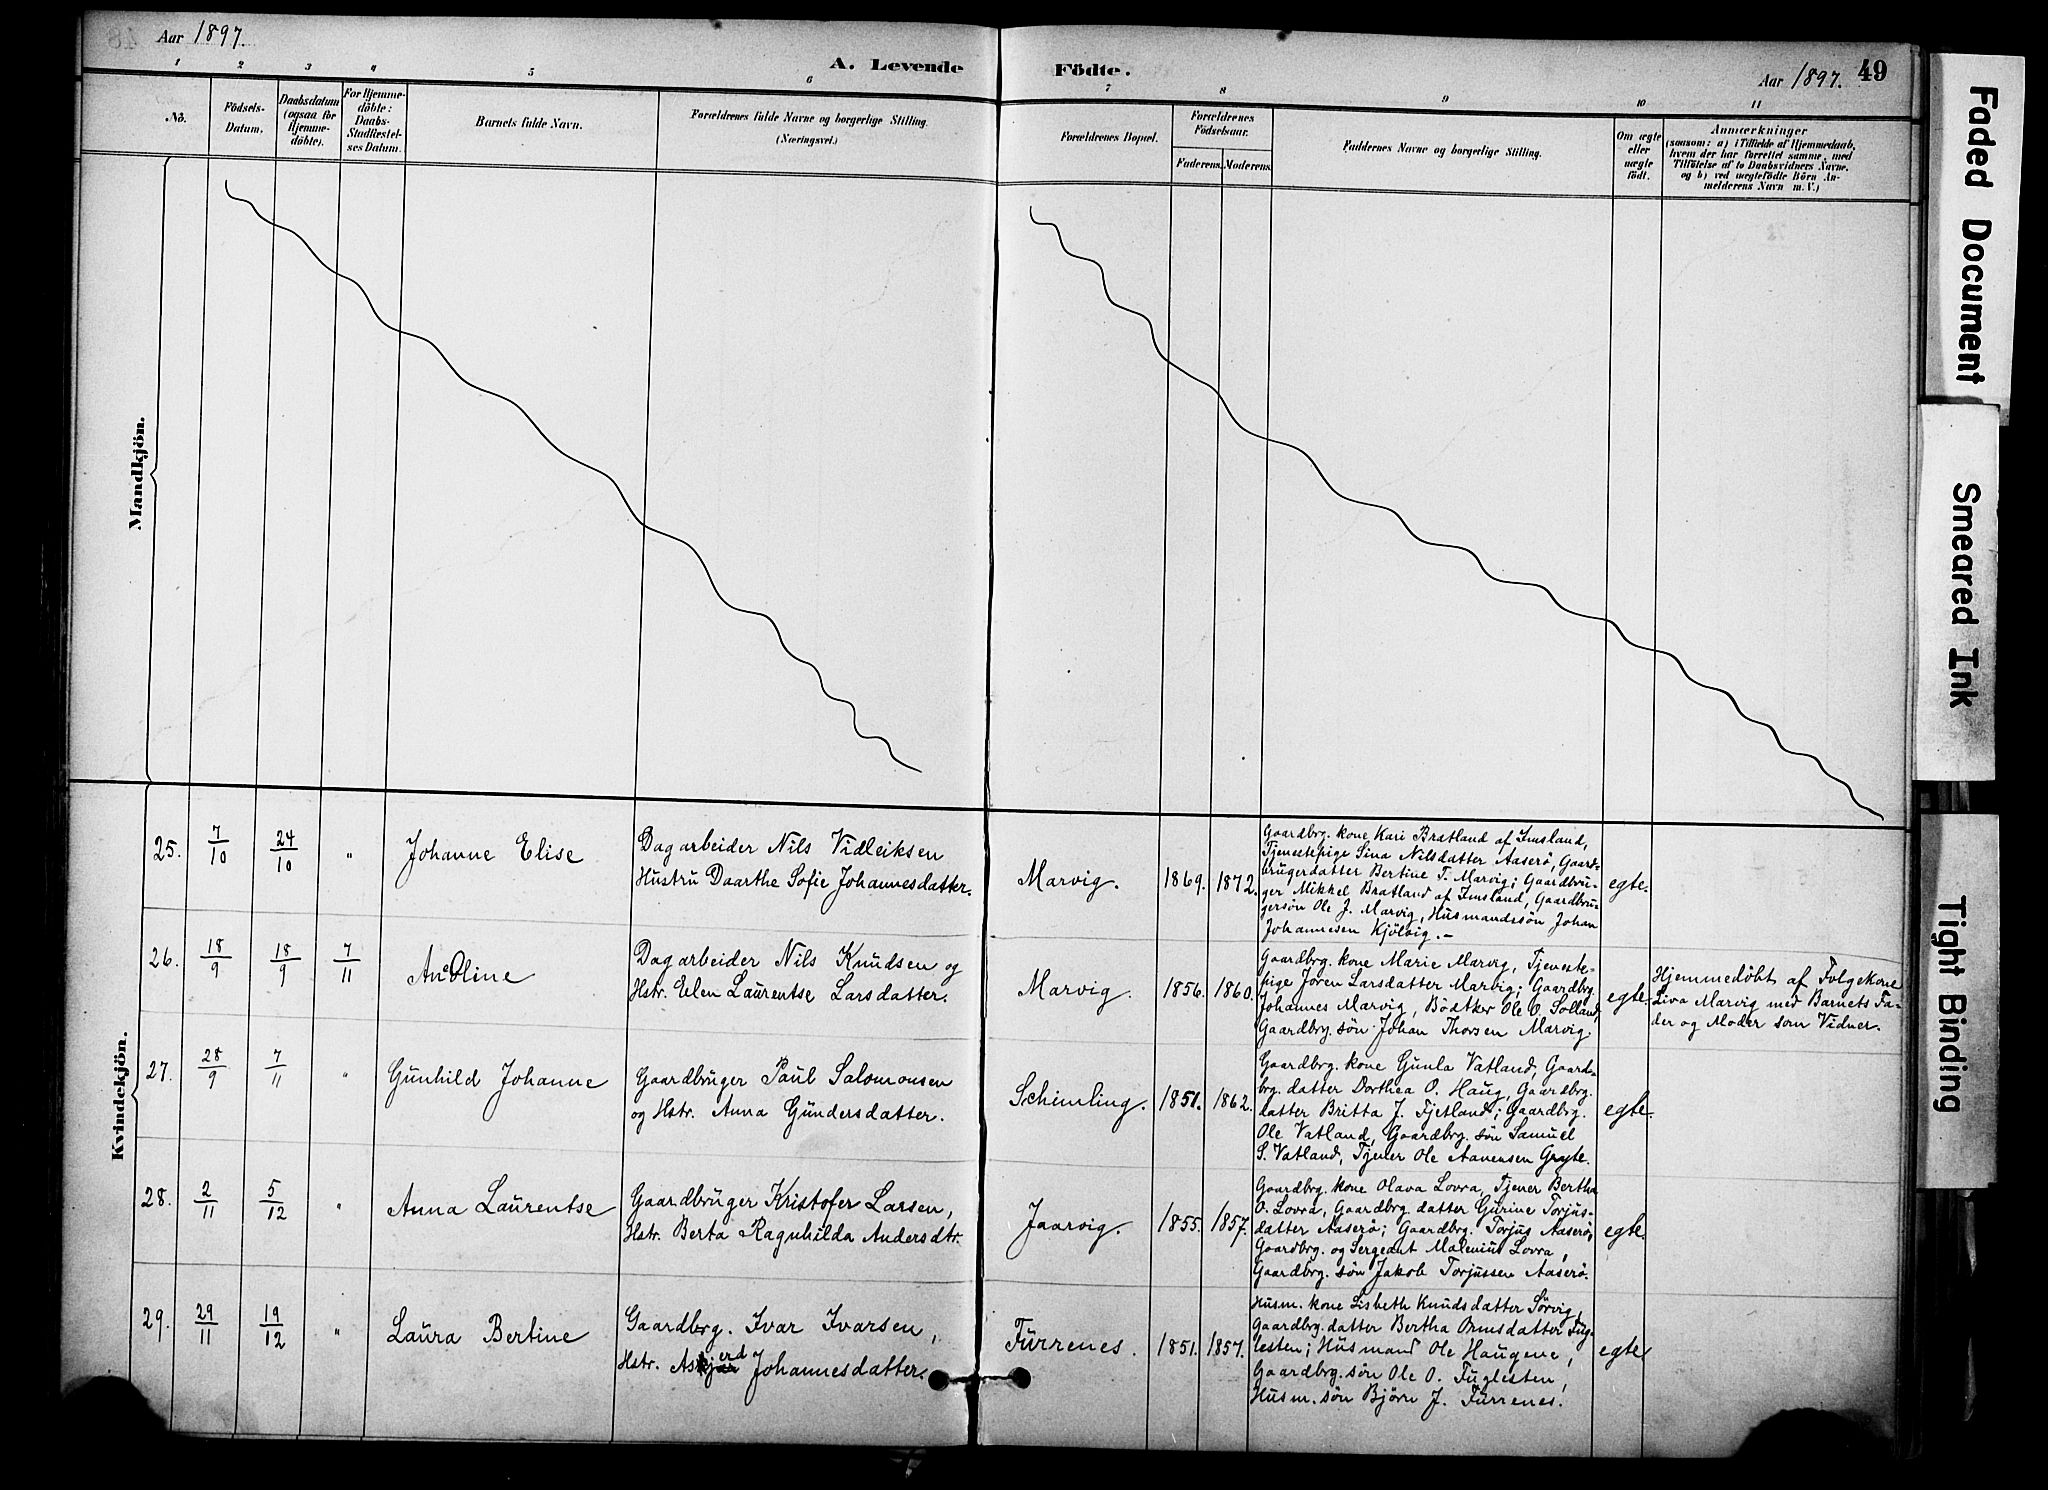 Aar 1897.
A. Levende
Födte.
Aar 1897.
49
1 2 3 4 5 6 7 8 9 10 11
No.
Födsels-
Datum.
Daabsdatum
(ogsaa for
Hjemme-
döbte).
For Hjemme-
döbte:
Daabs-
Stadfæstel-
ses Datum.
Barnets fulde Navn.
Forældrenes fulde Navne og borgerlige Stilling.
(Næringsvei.)
Forældrenes Bopæl.
Forældrenes
Födselsaar.
Faderens.
Moderens.
Faddernes Navne og borgerlige Stilling.
Om ægte
eller
uægte
födt.
Anmærkninger
(saasom: a) i Tilfælde af Hjemmedaab,
hvem der har forrettet samme, med
Tilföielse af to Daabsvidners Navne.
og b) ved uægtefödte Börn An-
melderens Navn m. V.)
Mandkjön.
Kvindekjön.
25.
7/10
24/10
"
Johanne Elise
Dagarbeider Nils Vidleiksen
Hustru Daarthe Sofie Johannesdatter.
Marvig.
1869.
1872.
Gaardbrg. kone Kari Bratland af Imsland,
Tjenestepige Sina Nilsdatter Aaserö, Gaard-
brugerdatter Bertine T. Marvig; Gaardbru-
ger Mikkel Bratland af Imsland, Gaardbru-
gersön Ole J. Marvig, Husmandssön Johan
Johannesen Kjölvig. –
egte.
26.
18/9
18/9
7/11
Ane Oline
Dagarbeider Nils Knudsen og
Hstr. Elen Laurentse Larsdatter.
Marvig.
1856.
1860.
Gaardbrg. kone Marie Marvig, Tjeneste-
pige Jören Larsdatter Marvig; Gaardbrg.
Johannes Marvig, Bödtker Ole O. Solland,
Gaardbrg. sön Johan Thorsen Marvig.
egte.
Hjemmedöbt af Fölgekone
Liva Marvig med Barnets Fa-
der og Moder som Vidner.
27.
28/9
7/11
"
Gunhild Johanne
Gaardbruger Paul Salomonsen
og Hstr. Anna Gundersdatter.
Schimling.
1851.
1862.
Gaardbrg. kone Gunla Vatland, Gaard-
brg. datter Dorthea O. Haug, Gaardbrg.
datter Britta J. Fjetland; Gaardbrg.
Ole Vatland, Gaardbrg. sön Samuel
S. Vatland, Tjener Ole Aanensen
egte.
28.
2/11
5/12
"
Anna Laurentse
Gaardbruger Kristofer Larsen,
Hstr. Berta Ragnhilda Andersdtr.
Jaarvig.
1855.
1857.
Gaardbrg. kone Olava Lovra, Tjener Bertha
O. Lovra, Gaardbrg. datter Gurine Torjus-
datter Aaserö; Gaardbrg. Torjus Aaserö,
Gaardbrg. og Sergeant Malenius Lovra,
Gaardbrg. sön Jakob Torjussen Aaserö.
egte.
29.
29/11
19/12
"
Laura Bertine
Gaardbrg. Ivar Ivarsen,
Hstr. Askjerd Johannesdatter.
Furrenes.
1851.
1857.
Husm. kone Lisbeth Knudsdatter Sörvig,
Gaardbrg. datter Bertha Ormsdatter Fug-
lesten; Husmand Ole Haugene,
Gaardbrg. sön Ole O. Fuglesten,
Husm. sön Björn J. Furrenes.
egte
Faded Document
Smeared Ink
Tight Binding